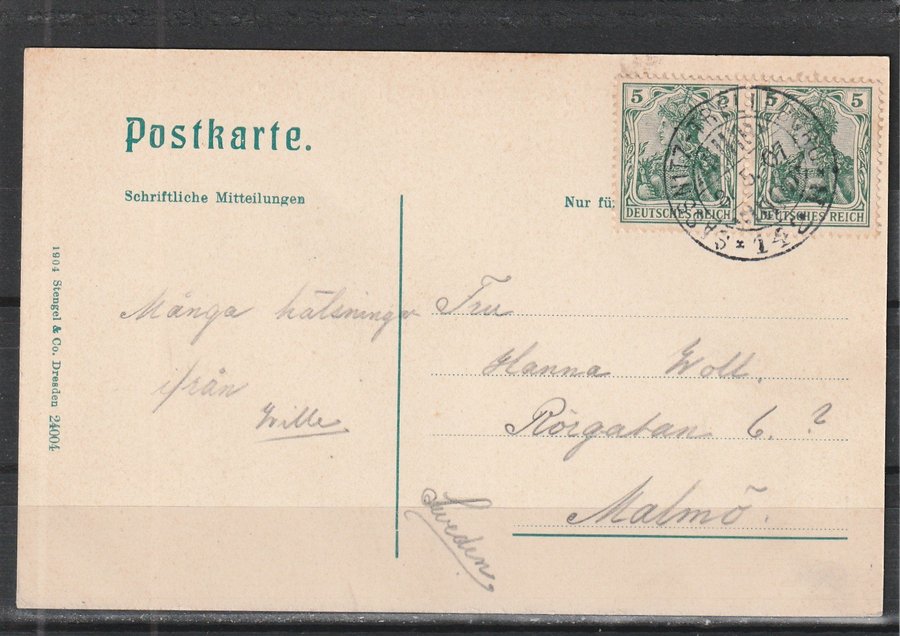 Postkarte.
5
5
DEUTSCHES REICH
DEUTSCHES REICH
SASSNITZ-TRELLEBORG
5.07
14
Schriftliche Mitteilungen
Nur fü
1904 Stengel & Co. Dresden 24004
Många hälsningar
ifrån
Wille
Fru
Hanna Woll.
Rörgatan 6. ?
Malmö.
Sweden